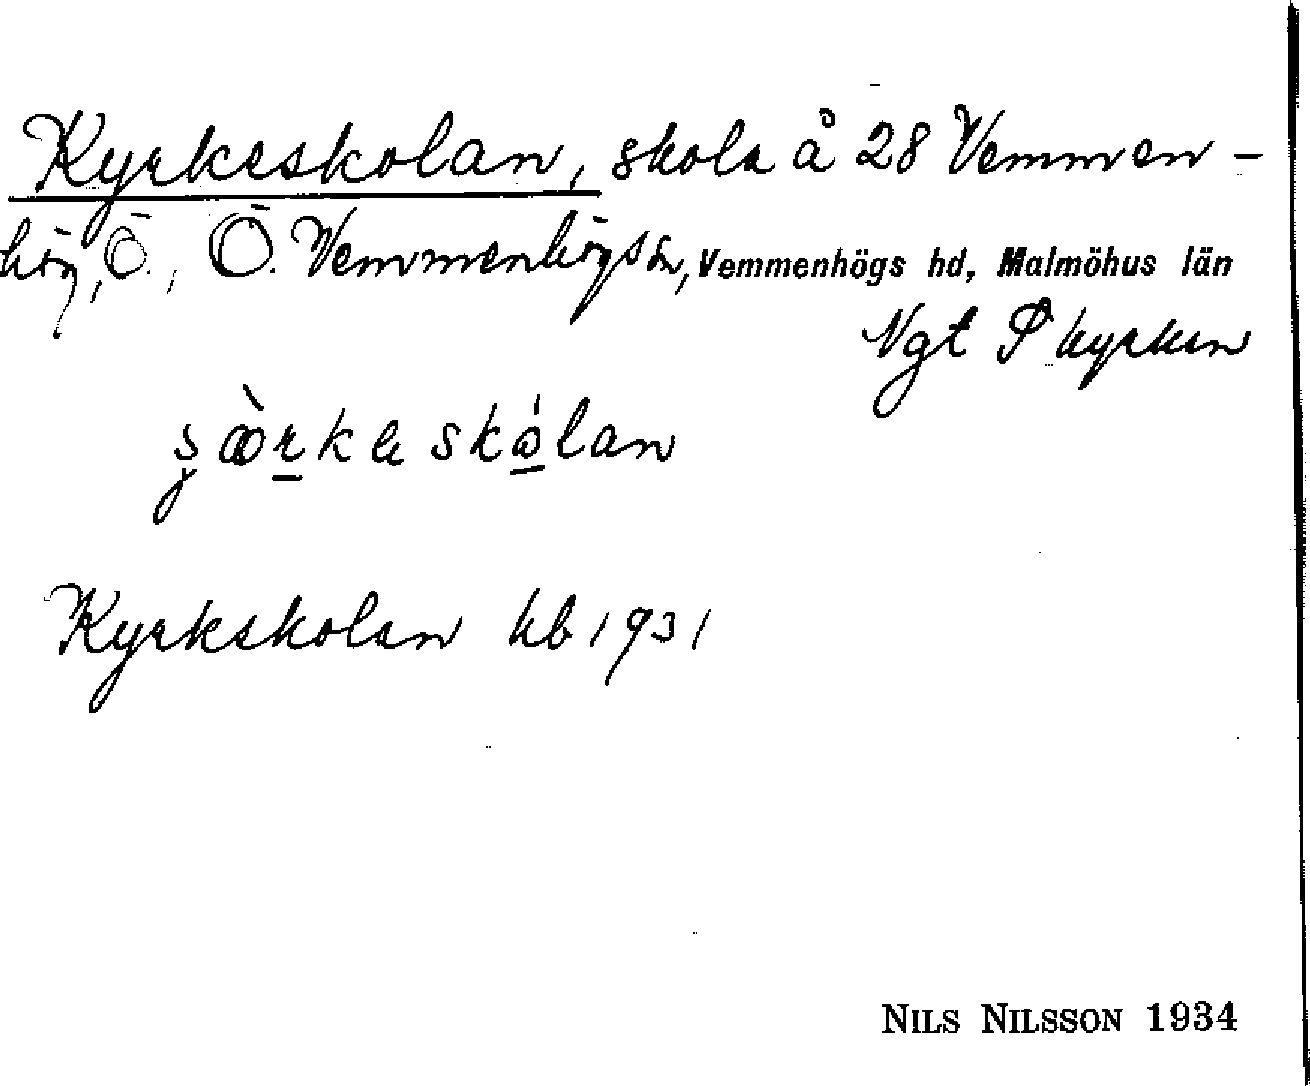 Kyrkeskolan, skola å 28 Vemmen-
hög, Ö., Ö. Vemmenhögs sn, Vemmenhögs hd, Malmöhus län
Ngt S kyrkan
Kyrkskolan kb 1931
NILS NILSSON 1934